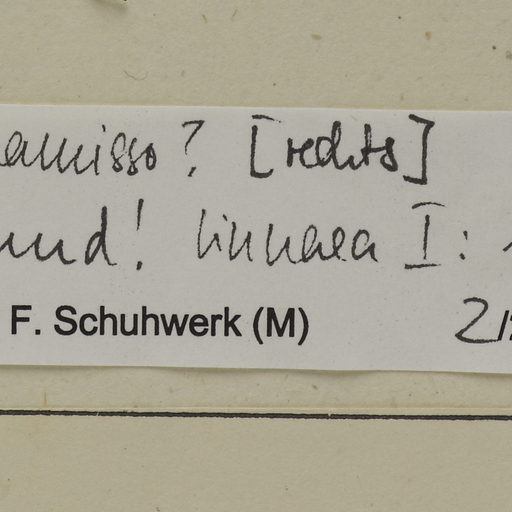 amisso? [rechts]
und! Linnaea I:
F. Schuhwerk (M) 2/